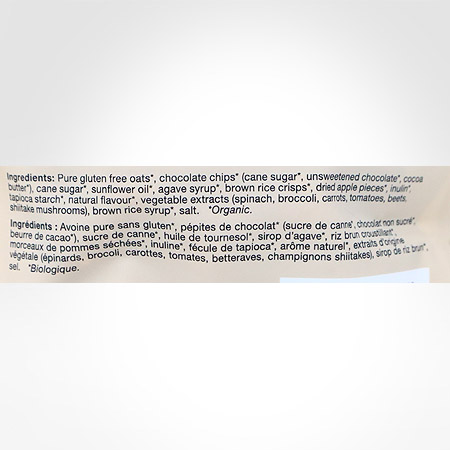 Ingredients: Pure gluten free oats*, chocolate chips* (cane sugar*, unsweetened chocolate*, cocoa
butter*), cane sugar*, sunflower oil*, agave syrup*, brown rice crisps*, dried apple pieces*, inulin*,
tapioca starch*, natural flavour*, vegetable extracts (spinach, broccoli, carrots, tomatoes, beets,
shiitake mushrooms), brown rice syrup*, salt. *Organic.
Ingrédients : Avoine pure sans gluten*, pépites de chocolat* (sucre de canne*, chocolat non sucré*,
beurre de cacao*), sucre de canne*, huile de tournesol*, sirop d'agave*, riz brun croustillant*,
morceaux de pommes séchées*, inuline*, fécule de tapioca*, arôme naturel*, extraits d'origine
végétale (épinards, brocoli, carottes, tomates, betteraves, champignons shiitakes), sirop de riz brun*,
sel. *Biologique.